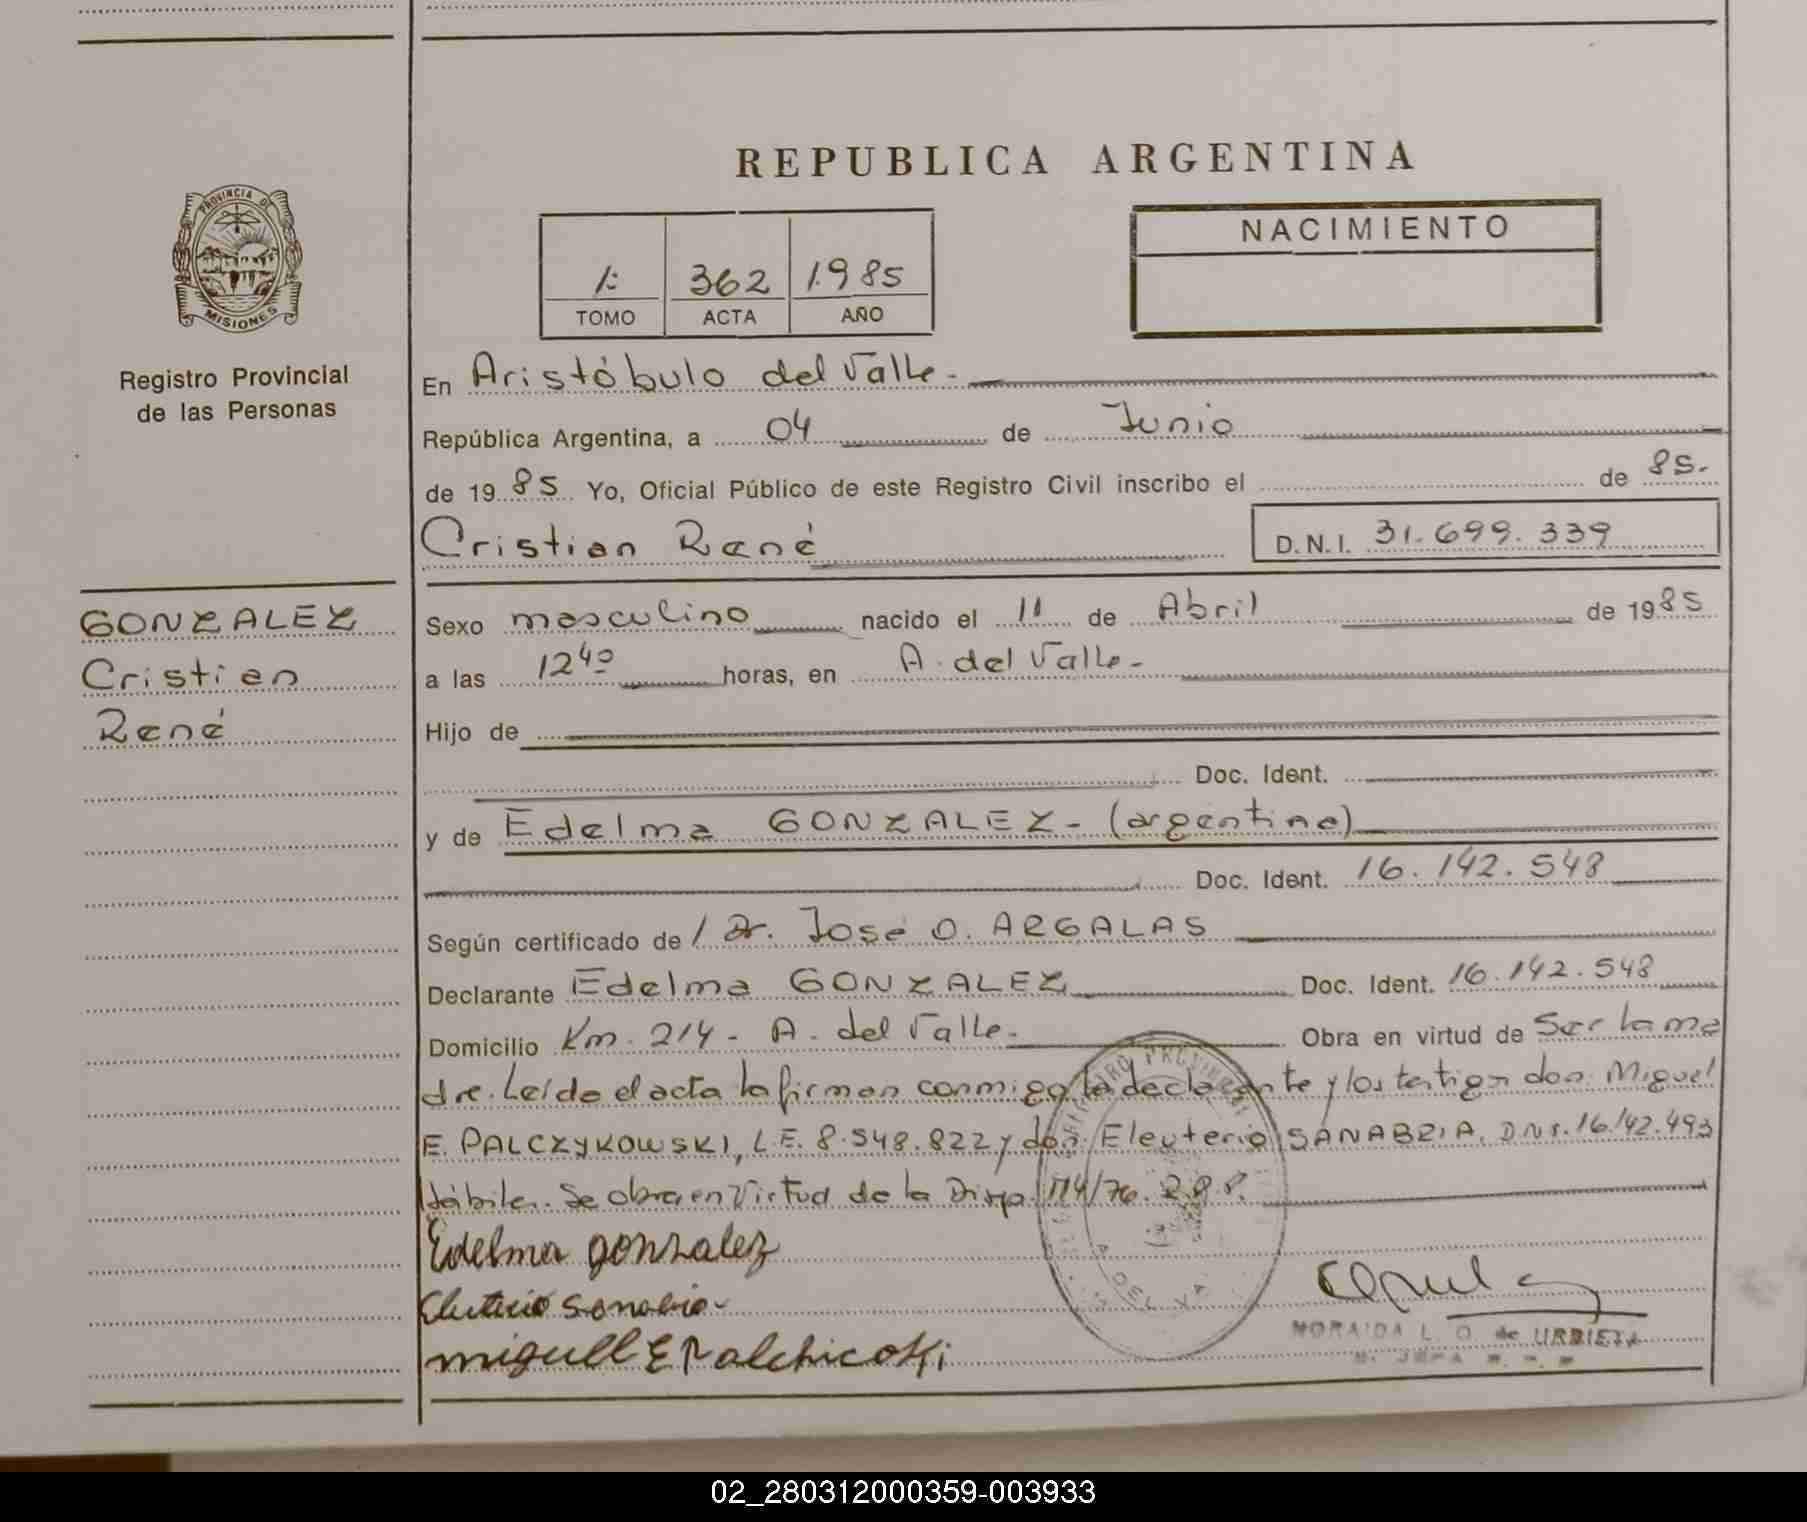 REPUBLICA ARGENTINA
PROVINCIA DE
MISIONES
Registro Provincial
de las Personas
1: 362 1.985
TOMO ACTA AÑO
NACIMIENTO
En Aristóbulo del Valle.-
República Argentina, a 04 de Junio
de 1985 Yo, Oficial Público de este Registro Civil inscribo el de 85.
Cristian René D.N.I. 31.699.339
GONZALEZ
Cristian
René
Sexo masculino nacido el 11 de Abril de 1985
a las 12 40 horas, en A. del Valle.-
Hijo de
Doc. Ident.
y de Edelma GONZALEZ - (argentina)
Doc. Ident. 16.142.548
Según certificado de / Dr. José O. ARGALAS
Declarante Edelma GONZALEZ Doc. Ident. 16.142.548
Domicilio Km. 214 - A. del Valle.- Obra en virtud de Ser la ma
dre. Leída el acta la firman conmigo la declarante y los testigos don Miguel
E. PALCZYKOWSKI, L.E. 8.548.822 y don Eleuterio SANABRIA. DNI. 16.142.493
Hábiles. Se obra en Virtud de la Disp. 114/76.
Edelma gonzalez
Eluterio Sanabria-
miguell E Palchicoski
NORAIDA L. O. de URBIETA
02_280312000359-003933